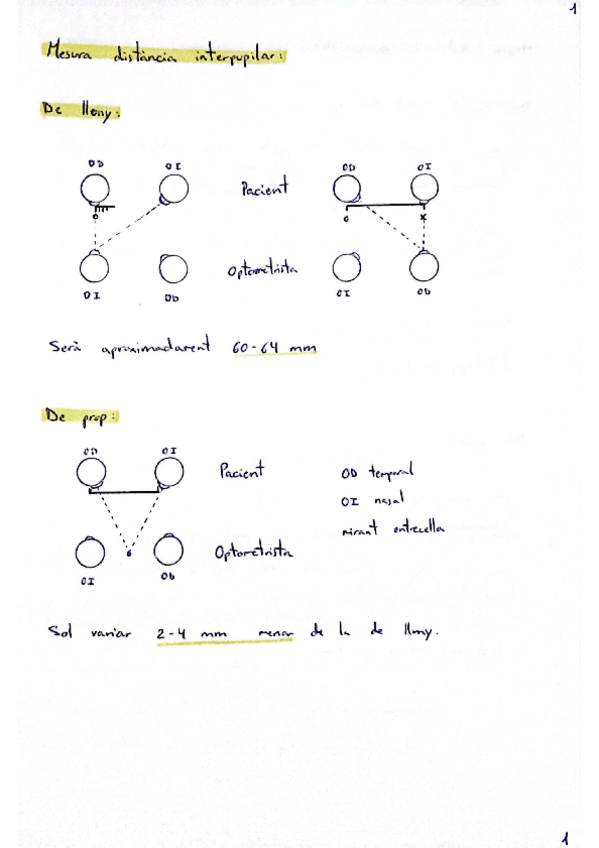 1
Mesura distància interpupilar:
De lluny:
OD OI OD OI
Pacient
0 0 x
Optometrista
OI OD OI OD
Serà aproximadament 60-64 mm
De prop:
OD OI
Pacient OD temporal
OI nasal
mirant entrecella
Optometrista
OI OD
Sol variar 2-4 mm menor de la de lluny.
1